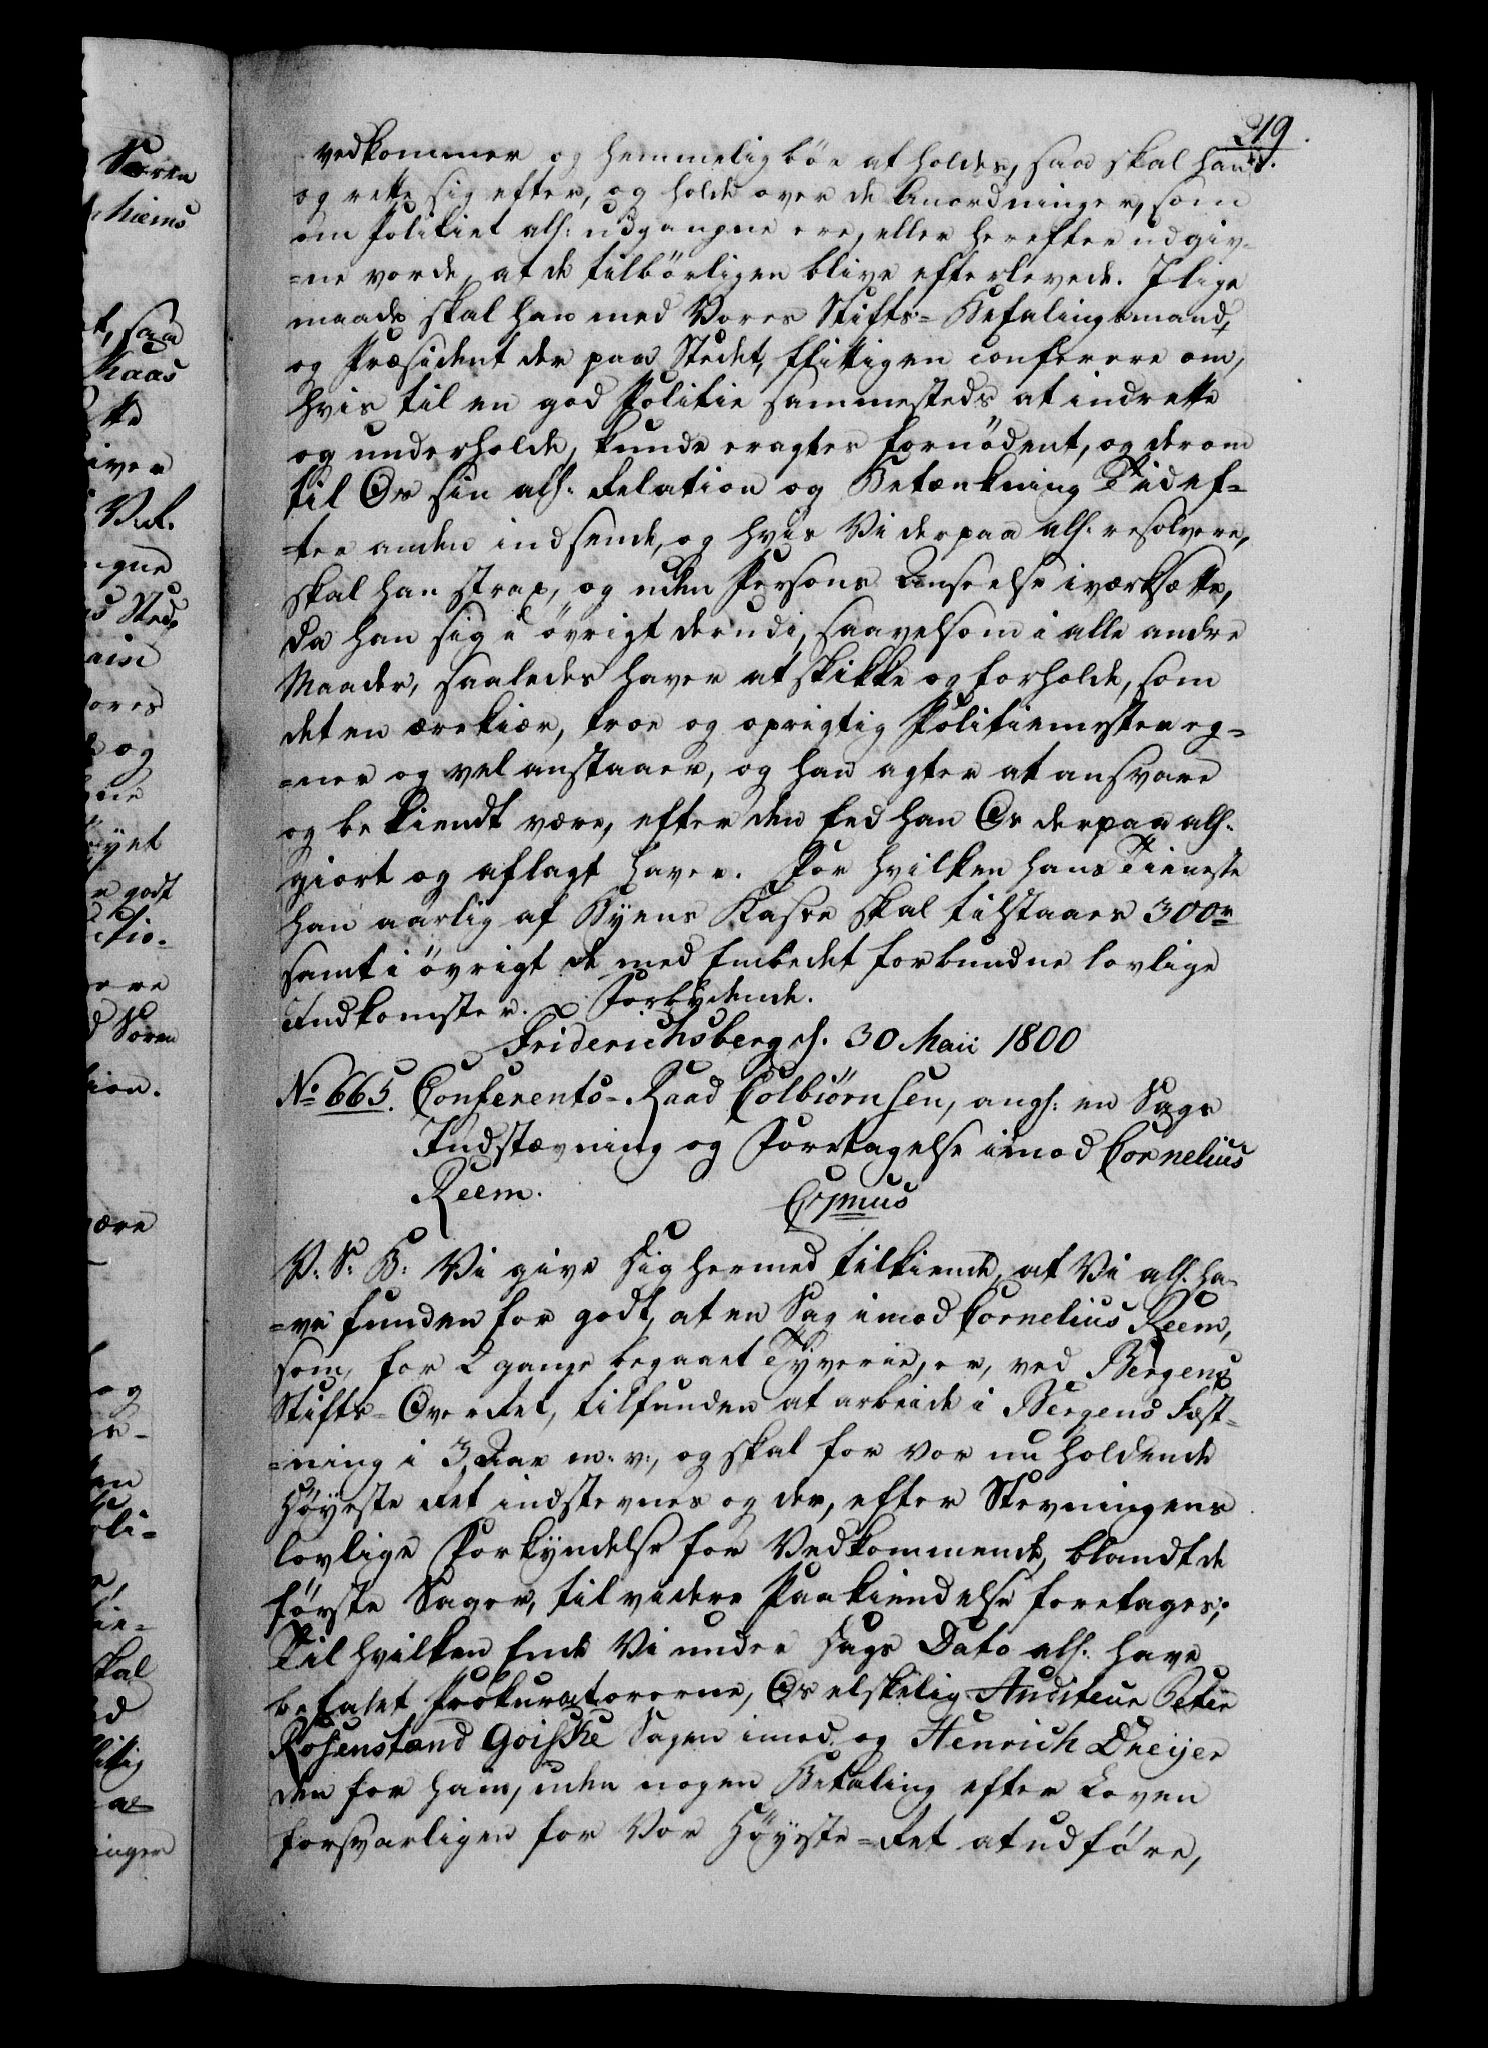 219.
vedkommer og hemmelig bör at holdes, saa skal han
og rette sig efter, og holde over de Anordninger, som
om Politiet alh: udgangne ere, eller herefter udgiv-
=ne vorde, at de tilbörligen blive efterlevede. I lige
maade skal han med Vores Stifts-Befalingsmand,
og Præsident der paa Stedet, flittigen conferere om,
hvis til en god Politie sammesteds at indrette
og underholde, kunde eragtes fornödent, og derom
til Os sin alh: Relation og Betænkning Tid ef-
=ter anden indsende, og hvis Vi derpaa alh: resolvere,
skal han strax, og uden Persons Anseelse iværksætte,
da han sig i övrigt derudi, saavelsom i alle andre
Maader, saaledes haver at skikke og forholde, som
det en ærekiær, troe og oprigtig Politiemester eg-
=ner og vel anstaaer, og han agter at ansvare
og bekiendt være, efter den Eed han Os derpaa alh:
giort og aflagt haver. For hvilken hans Tieneste
han aarlig af Byens Kasse skal tilstaaes 300 r
samt i övrigt de med Embedet forbundne lovlige
Indkomster. Forbydende.
Friderichsberg d. 30 Maii 1800
No 665. Conferents-Raad Colbiörnsen, angh: en Sags
Indstævning og Foretagelse imod Cornelius
Reem.
Crsmus
V: S: B: Vi give Dig hermed tilkiende, at Vi alh: ha-
=ve funden for godt, at en Sag imod Cornelius Reem,
som, for 2 gange begaaet Tyverie, er, ved Bergens
Stifts-Overret, tilfunden at arbeide i Bergens Fæst-
=ning i 3 Aar m: v:, og skal for vor nu holdende
Höyeste Ret indstevnes og der, efter Stevningens
lovlige Forkyndelse for Vedkommende, blandt de
förste Sager, til videre Paakiendelse foretages;
Til hvilken Ende Vi under Dags Dato alh: have
befalet Prokuratorerne, Os elskelig Auditeur Peter
Rosenstand Goiske Sagen imod, og Henrich Dreijer
den for ham, uden nogen Betaling efter Loven
forsvarligen for Vor Höyeste-Ret at udföre,